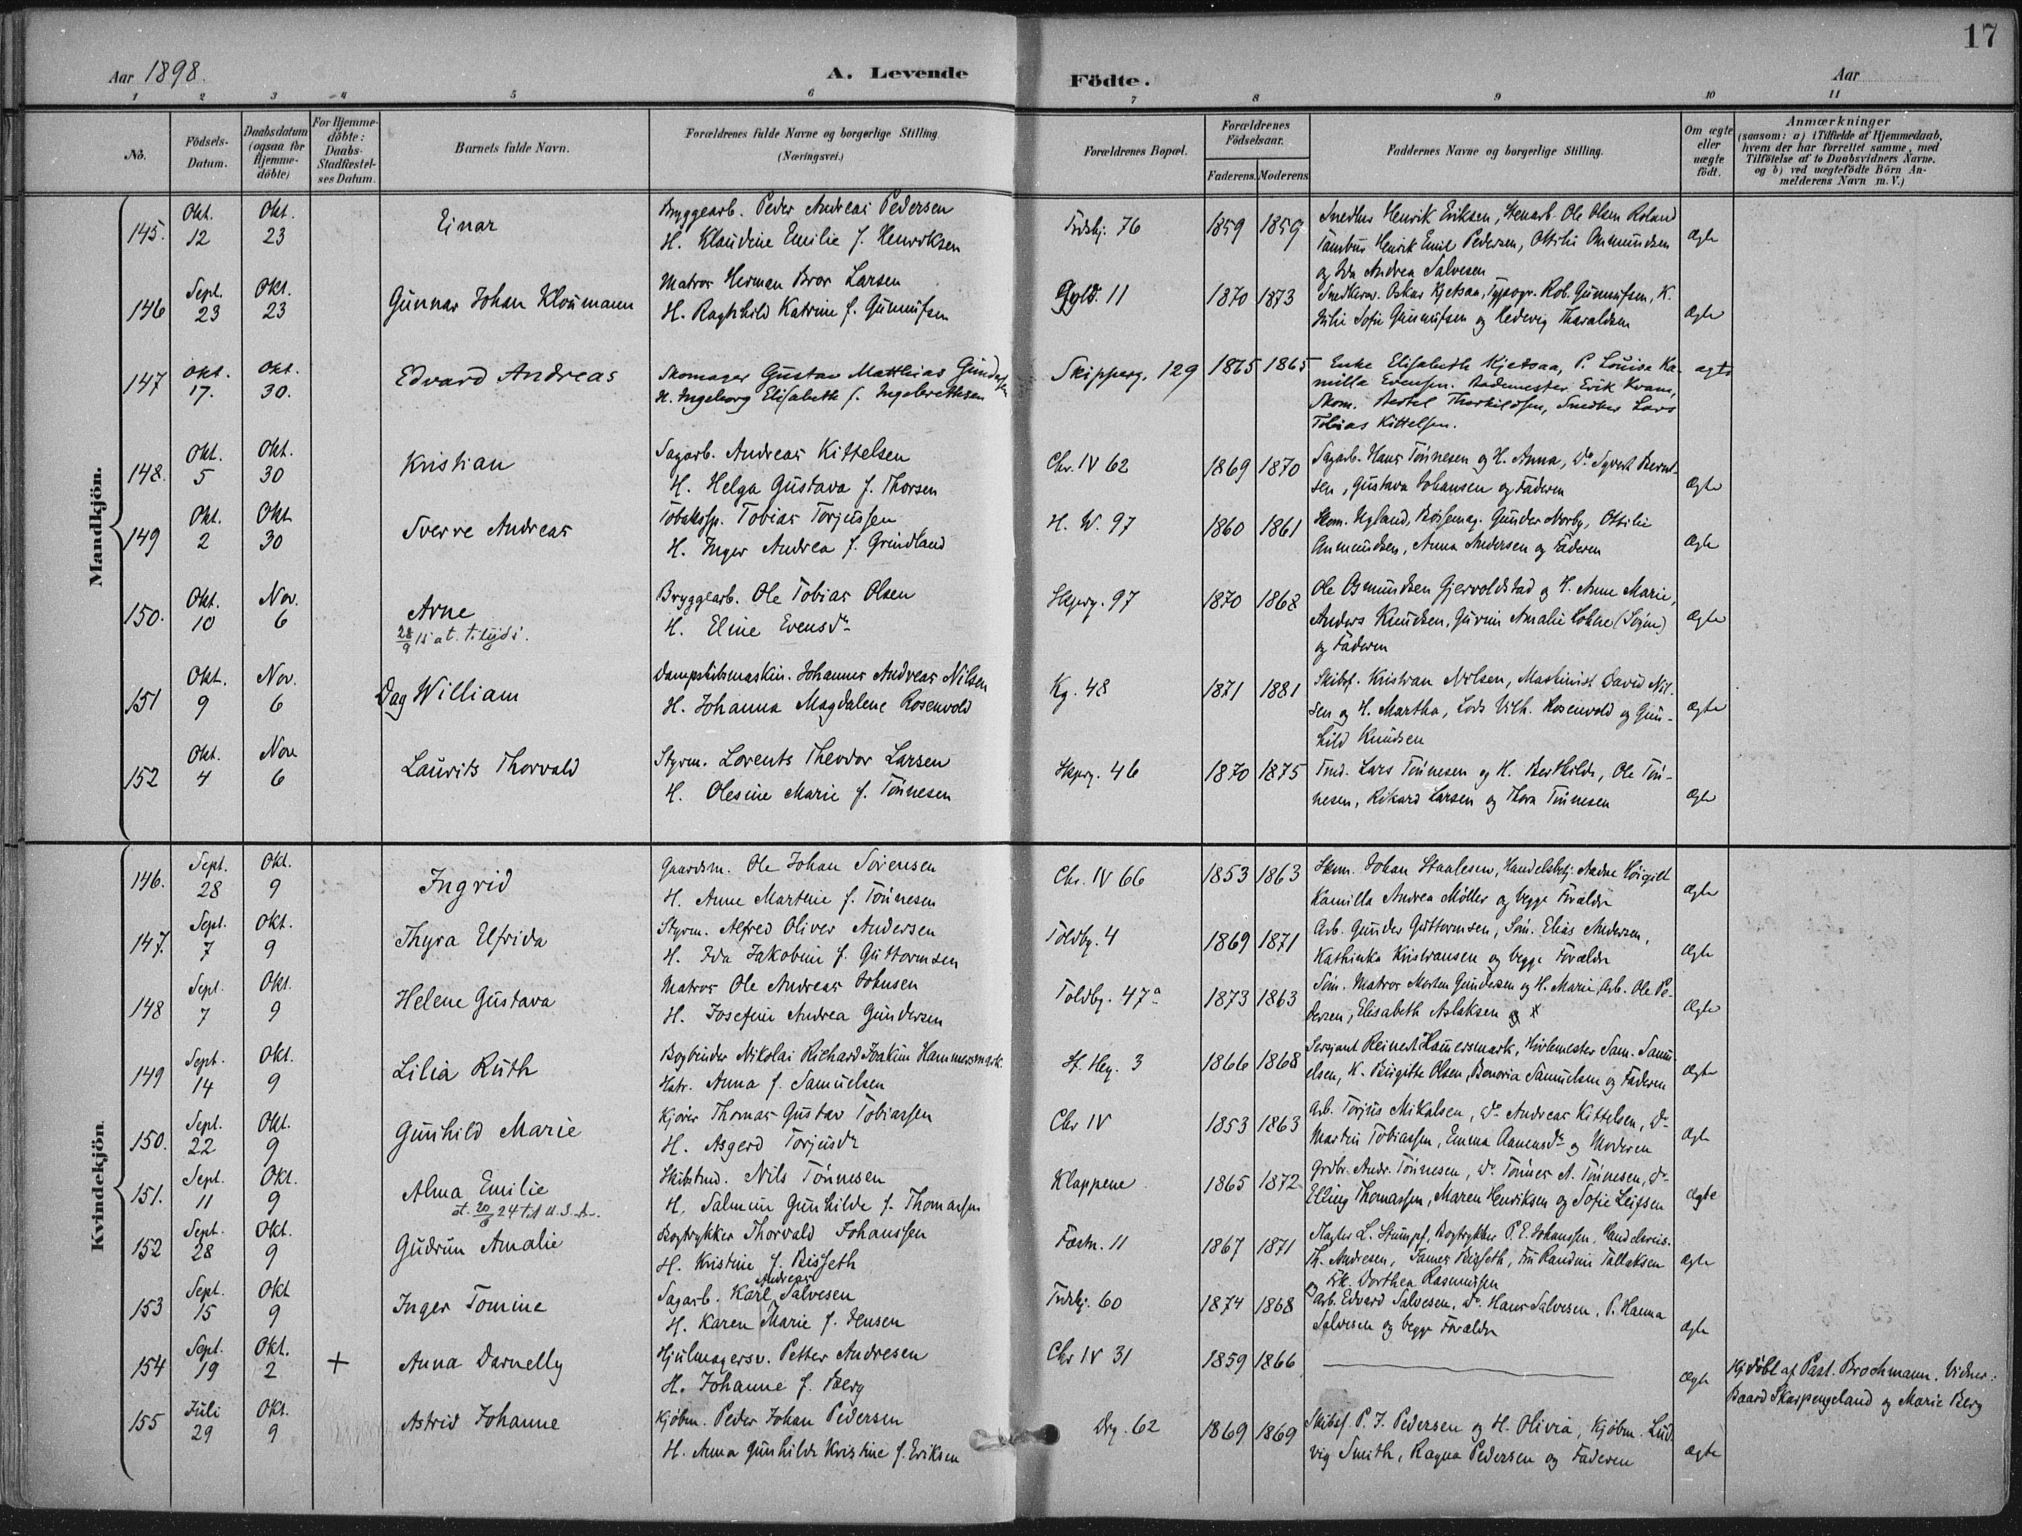 17
Aar 1898.
A. Levende Födte.
Aar
1 2 3 4 5 6 7 8 9 10 11
No.
Födsels-Datum.
Daabsdatum (ogsaa för Hjemme-döbte)
For Hjemme-döbte: Daabs-Stadfæstel-ses Datum.
Barnets fulde Navn.
Forældrenes fulde Navne og borgerlige Stilling. (Næringsvei.)
Forældrenes Bopæl.
Forældrenes Födselsaar.
Faderens. Moderens.
Faddernes Navne og borgerlige Stilling.
Om ægte eller uægte födt.
Anmærkninger
(saasom: a) i Tilfælde af Hjemmedaab,
hvem der har forrettet samme, med
Tilföielse af to Daabsvidners Navne.
og b) ved uægtefödte Börn An-
melderens Navn m. V.)
Mandkjön.
145. Okt. 12 Okt. 23 Einar
Bryggearb. Peder Andreas Pedersen
H. Klaudine Emilie f. Henriksen
76 1859 1859
Snedker Henrik Eriksen, Stenarb. Ole Olsen Roland
Tambur Henrik Emil Pedersen, Ottilie Ommundsen
og Ida Andrea Salvesen
Ægte
146 Sept. 23 Okt. 23 Gunnar Johan Kloumann
Matros Herman Bror Larsen
H. Raghhild Katrine f. Gunnufsen
Gyld. 11 1870 1873
Snedkersv. Oskar Kjetsaa, Typogr. Rob. Gunnufsen, K.
Julie Sofie Gunnufsen og Hedevig Tharaldsen
Ægte
147 Okt. 17. Okt. 30. Edvard Andreas
Skomager Gustav Matthias Gundersen
H. Ingeborg Elisabeth f. Ingebrethsen
Skipperg. 129 1865 1865
Enke Elisabeth Kjetsaa, P. Louise Ka-
milla Evensen. Rodemester Erik Kvam,
Skom. Bertel Thorkildsen, Snedker Lars
Tobias Kittelsen.
ægte
148. Okt. 5 Okt. 30 Kristian
Sagarb. Andreas Kittelsen
H. Helga Gustava f. Thorsen
Chr. IV 62 1869 1870
Sagarb. Hans Tönnesen og H. Anna, Do Syvert Bernt-
sen, Gustava Johansen og Faderen
Ægte
149 Okt. 2 Okt. 30 Sverre Andreas
Tobakssp. Tobias Torjussen
H. Inger Andrea f. Grindland
H. W. 97 1860 1861
Skom. Ugland, Bössemag. Gunder Norby, Ottilie
Ommundsen, Anna Andersen og Faderen
Ægte
150. Okt. 10 Nov. 6 Arne
28/9 15 at. t. tyds.
Bryggearb. Ole Tobias Olsen
H. Eline Evensdr
Skprg. 97 1870 1868
Ole Osmundsen Gjervoldstad og H. Anne Marie,
Anders Knudsen, Gurine Amalie Lohne (Søgne)
og Faderen
Ægte
151 Okt. 9 Nov. 6 Dag William
Dampskibsmaskin. Johannes Andreas Nilsen
H. Johanna Magdalene Rosenvold
Kg. 48 1871 1881
Skibsf. Kristian Nilsen, Maskinist David Nil-
sen og H. Martha, Lods Vilh. Rosenvold og Gun-
hild Knudsen
Ægte
152 Okt. 4 Nov 6 Laurits Thorvald
Styrm. Lorents Theodor Larsen
H. Olesine Marie f. Tönnesen
Skprg. 46 1870 1875
Tmd. Lars Tönnesen og H. Berthilde, Ole Tön-
nesen, Rikard Larsen og Thora Tönnesen
Ægte
Kvindekjön.
146. Sept. 28 Okt. 9 Ingrid
Gaardsm. Ole Johan Sörensen
H. Anne Martine f. Tönnesen
Chr. IV 66 1853 1863
Skm. Johan Staalesen, Handelsbetj. Aadne
Kamilla Andrea Møller og begge Forældre
Ægte
147. Sept. 7 Okt. 9 Thyra Elfrida
Styrm. Alfred Oliver Andersen
H. Ida Jakobine f. Guttormsen
Toldbg. 4 1869 1871
Arb. Gunder Guttormsen, Söm. Elias Andersen,
Kathinka Kristiansen og begge Forældre
Ægte
148 Sept. 7 Okt. 9 Helene Gustava
Matros Ole Andreas Johnsen
H. Josefine Andrea Gundersen
Toldbg. 47a 1873 1863
Söm. Matros Morten Gundersen og H. Marie, Arb. Ole Pe-
dersen, Elisabeth Aslaksen og
Ægte
149 Sept. 14 Okt. 9 Lilia Ruth
Bogbinder Nikolai Richard Joakim Hammersmark
Hstr. Anna f. Samuelsen
St. Heg. 3 1866 1868
Sersjant Reinert Hammersmark, Hvelvmester Sam. Samu-
elsen, K. Birgitte Olsen, Benoria Samuelsen og Faderen
Ægte
150. Sept. 22 Okt. 9 Gunhild Marie
Kjörer Thomas Gustav Tobiassen
H. Asgerd Torjusdr
Chr IV 1853 1863
Arb. Torjus Mikalsen, Do Andreas Kittelsen, Do
Martin Tobiassen, Emma Aanensdr og Moderen
Ægte
151. Sept. 11 Okt. 9 Alma Emilie
at. 20/6 24 til U.S.A.
Skibstmd. Nils Tönnesen
H. Salmine Gunhilde f. Thomassen
Klappene. 1865 1872
Grdbr. Andr. Tönnesen, Do Tönnes A. Tönnesen, Do
Elling Thomassen, Maren Henriksen og Sofie Leifsen
ægte
152 Sept. 28 Okt. 9 Gudrun Amalie
Bogtrykker Thorvald Johanssen
H. Kristine f. Bisseth
Fæstn. 11 1867 1871
Slagter L. Stumpf, Bogtrykker P. E. Johanssen, Handelsreis.
Th. Andresen, James Bisseth, Fru Randine Tallaksen
og Frk. Dorthea Rasmussen
Ægte
153 Sept. 15 Okt 9 Inger Tomine
Sagarb. Karl Andreas Salvesen
H. Karen Marie f. Jensen
60 1874 1868
Arb. Edvard Salvesen, Do Hans Salvesen, P. Hanna
Salvesen og begge Forældre
Ægte
154 Sept. 19 Okt. 2 + Anna Darnelly
Hjulmagersv. Petter Andresen
H. Johanne f. Berg
Chr IV 31 1859 1866
Ægte
Hj. döbt af Past. Brochmann. Vidner:
Baard Skaspengeland og Marie Berg
155 Juli 29 Okt. 9 Astrid Johanne
Kjøbm. Peder Johan Pedersen
H. Anna Gunhilde Kristine f. Eriksen
Drg. 62 1869 1869
Skibsf P. J. Pedersen og H. Olivia, Kjøbm. Lud-
vig Smith, Ragna Pedersen og Faderen
ægte